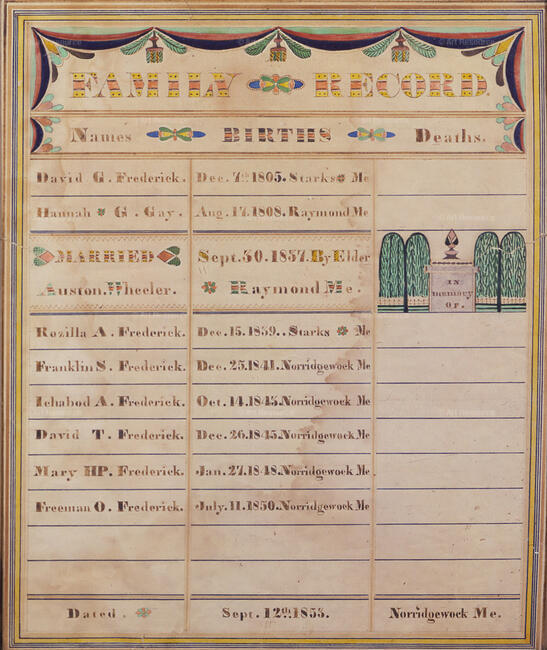 © Art Resource © Art Resource © Art Resource
FAMILY RECORD.
Names BIRTHS Deaths.
David G. Frederick. Dec. 7th 1805. Starks Me
Hannah G. Gay. Aug. 17. 1808. Raymond Me
MARRIED Sept. 30. 1837. By Elder
Auston. Wheeler. Raymond Me.
IN
memory
OF.
Rozilla A. Frederick. Dec. 15. 1839.. Starks Me
Franklin S. Frederick. Dec. 25. 1841. Norridgewock Me
Ichabod A. Frederick. Oct. 14. 1843. Norridgewock Me
David T. Frederick. Dec. 26. 1845. Norridgewock Me
Mary HP. Frederick. Jan. 27. 1848. Norridgewock Me
Freeman O. Frederick. July. 11. 1850. Norridgewock Me
Dated. Sept. 12th 1853. Norridgewock Me.